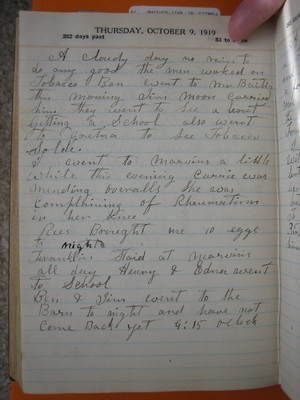 THURSDAY, OCTOBER 9, 1919
282 days past
A Cloudy day no rain to
do any good the men worked on
Tobacco Ben went to Mr Butler
this morning Jim Moon Carried
him they went to See a bout
getting a School also went
to to See Tobacco
Sold.
I went to Marvins a little
while this evening Carrie was
mending overalls She was
Complhining of Rheumatism
in her Knee
Brought me 10 eggs
to night
Franklin Staid at Marvins
all day Henny & Edna went
to School
Ben & Jim went to the
Barn to night and have not
Come Back yet 9:15 oclock